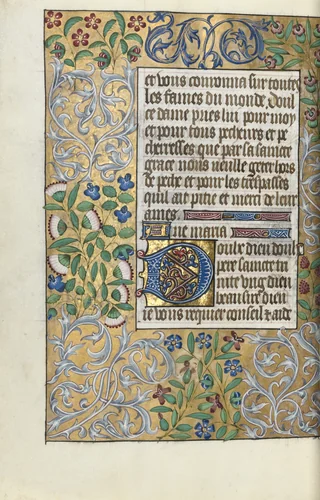 et vous couronna sur toutes
les fames du monde. Doul
ce dame pries lui pour moy
et pour tous pecheurs et pe
cheresses que par sa sainte
grace nous veulle geter hors
de peche et pour les trespasses
quil ait pitie et merci de leurs
ames.
Aue maria
Doulx dieu doulx
pere sainte trï
nite vng dieu
beausire dieu
ie vous requier conseil & aide